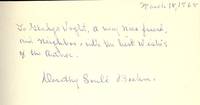 March 18, 1965
To Gladys Voght, a very dear friend,
and neighbor, with the best wishes
of the author.
Dorothy Soulé